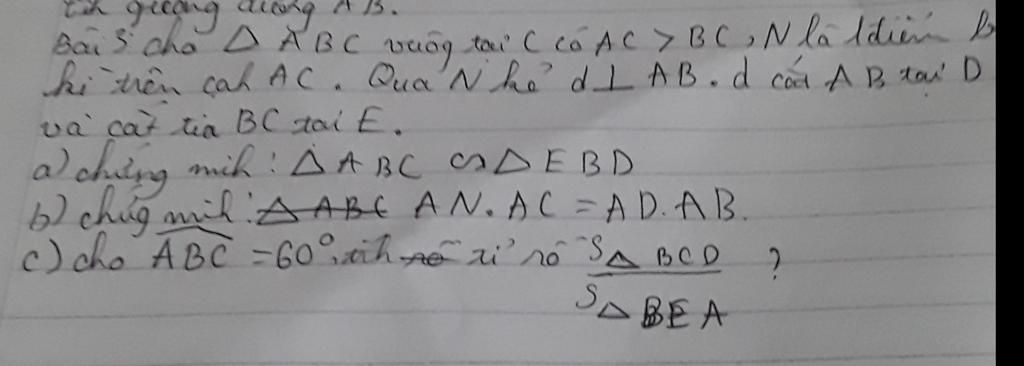 đường AB.
Bài 5 cho △ ABC vuông tại C có AC > BC, N là 1 điểm B
kì trên cạh AC. Qua N kẻ d ⊥ AB. d cắt AB tại D
và cắt tia BC tại E.
a) chứng mih: △ ABC ∽ △ EBD
b) chúg mih: △ ABC AN. AC = AD. AB.
c) cho ABC = 60°, tíh số tỉ số S△ BCD / S△ BEA ?